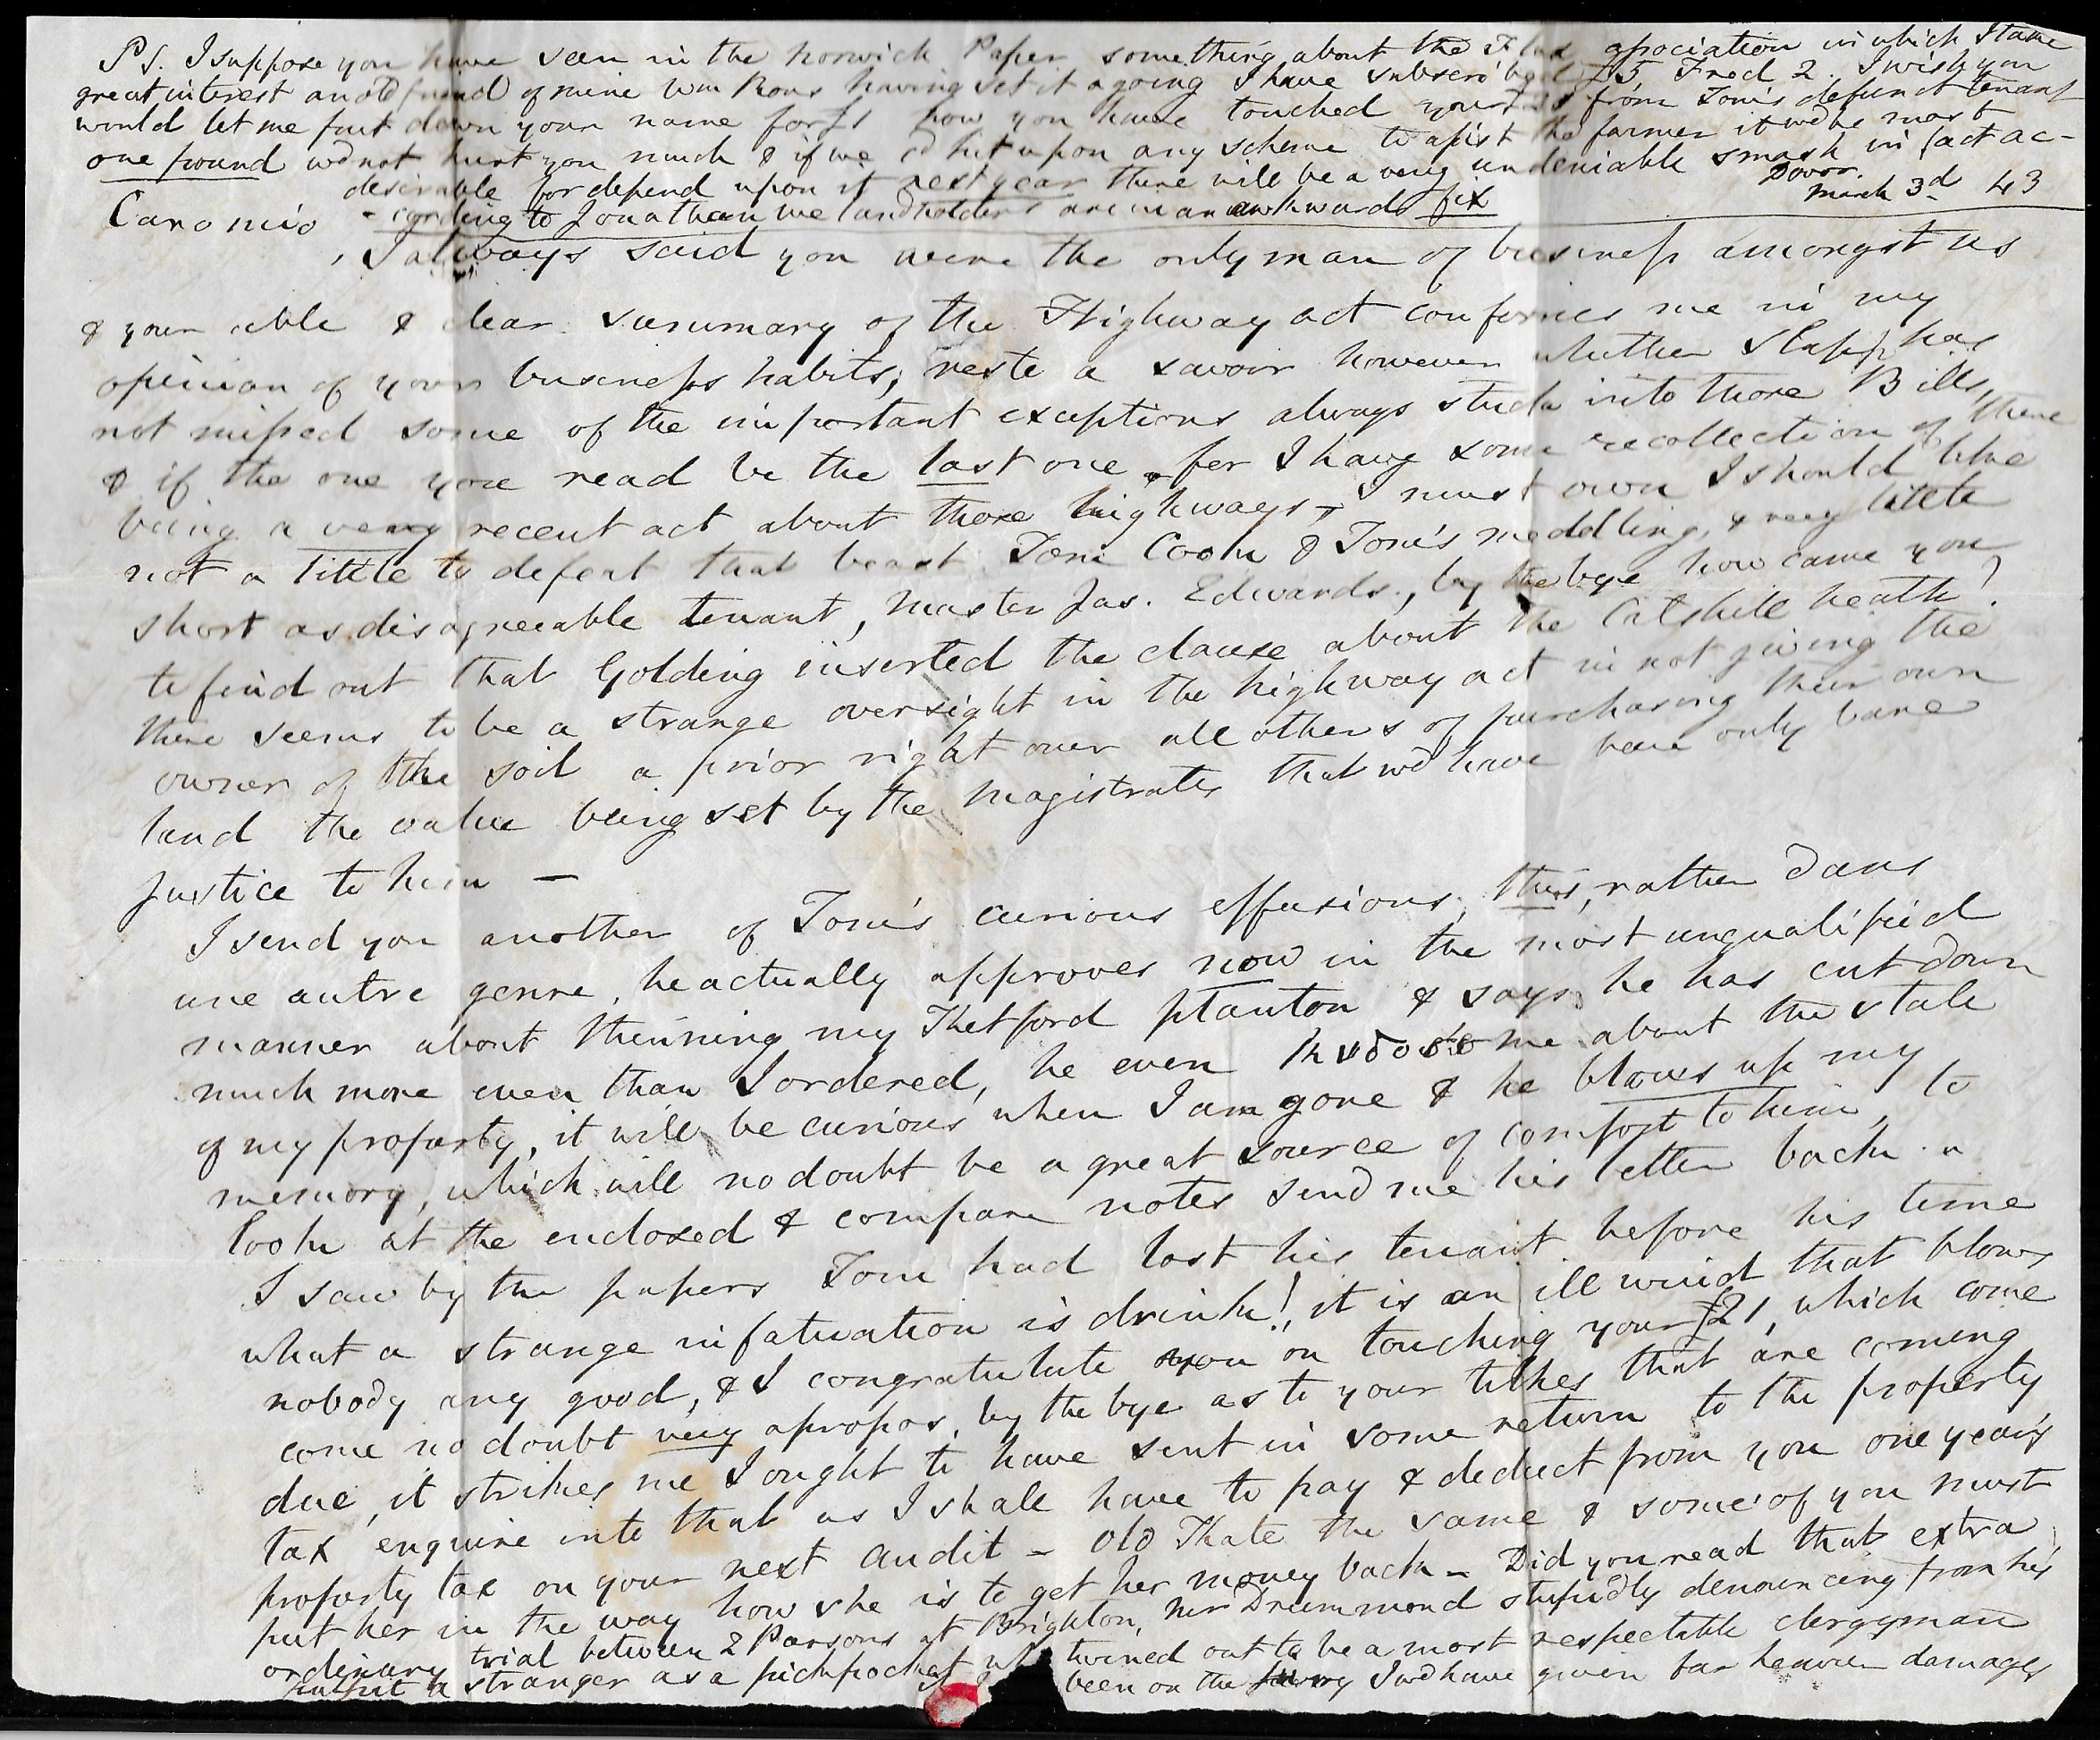 PS. I suppose you have seen in the Norwich Paper something about the Flax association in which I take
great interest an old friend of mine Wm Rous having set it a going I have subscribed £5 Fred 2. I wish you
would let me put down your name for £1 now you have touched your £21 from Tom's defunct tenant
one pound wd not hurt you much & if we cd hit upon any scheme to assist the farmer it wd be most
desirable for depend upon it next year there will be a very undeniable smash in fact ac-
-cording to Jonathan we landholders are in an awkward fix
Dover
March 3d 43
Caro mio
I always said you were the only man of business amongst us
& your able & clear summary of the Highway act confirms me in my
opinion of your business habits; reste a savoir however whether Slapp has
not missed some of the important exceptions always stuck into those Bills,
& if the one you read be the last one, for I have some recollection of there
being a very recent act about those highways, I must own I should like
not a little to defeat that beast Tom Cook & Tom's meddling, & very little
short as disagreeable tenant, Master Jas. Edwards., by the bye how came you
to find out that Golding inserted the clause about the Catshill heath?
there seems to be a strange oversight in the highway act in not giving the
owner of the soil a prior right over all others of purchasing their own
land the value being set by the Magistrates that wd have been only bare
justice to him —
I send you another of Tom's curious effusions, this, rather dans
une autre genre, he actually approves now in the most unqualified
manner about thinning my Thetford planton & says he has cut down
much more even than I ordered, he even me about the state
of my property, it will be curious when I am gone & he blows up my
memory, which will no doubt be a great source of comfort to him, to
look at the enclosed & compare notes send me his letter back.
I saw by the papers Tom had lost his tenant before his time
what a strange infatuation is drink!, it is an ill wind that blows
nobody any good, & I congratulate you on touching your £21, which come
come no doubt very apropos, by the bye as to your tithes that are coming
due, it strikes me I ought to have sent in some return to the property
tax enquire into that as I shall have to pay & deduct from you one year's
property tax on your next audit — old Kate the same & some of you must
put her in the way how she is to get her money back — Did you read that extra
ordinary trial between 2 Parsons at Brighton, Mr Drummond stupidly denouncing from his
pulpit a stranger as a pickpocket turned out to be a most respectable clergyman
if been on the jury I wd have given far heavier damages